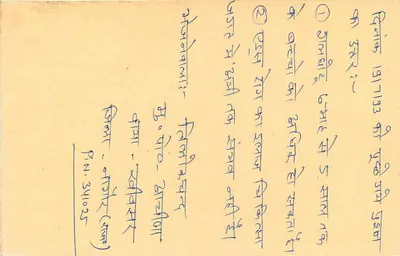 दिनांक 19।7।93 को पूछे गये प्रश्न
का उत्तर :-
① गलघोंटू 6 माह से 5 साल तक
के बच्चो को अधिक हो सकता है।
② एड्स रोग का इलाज चिकित्सा
जगत में अभी तक संभव नही है।
भेजनेवाला:-
त्रिलोकचन्द
मु॰ पो॰ आचीणा
वाया - खींवसर
जिला - नागौर (राज)
P.N. 341025